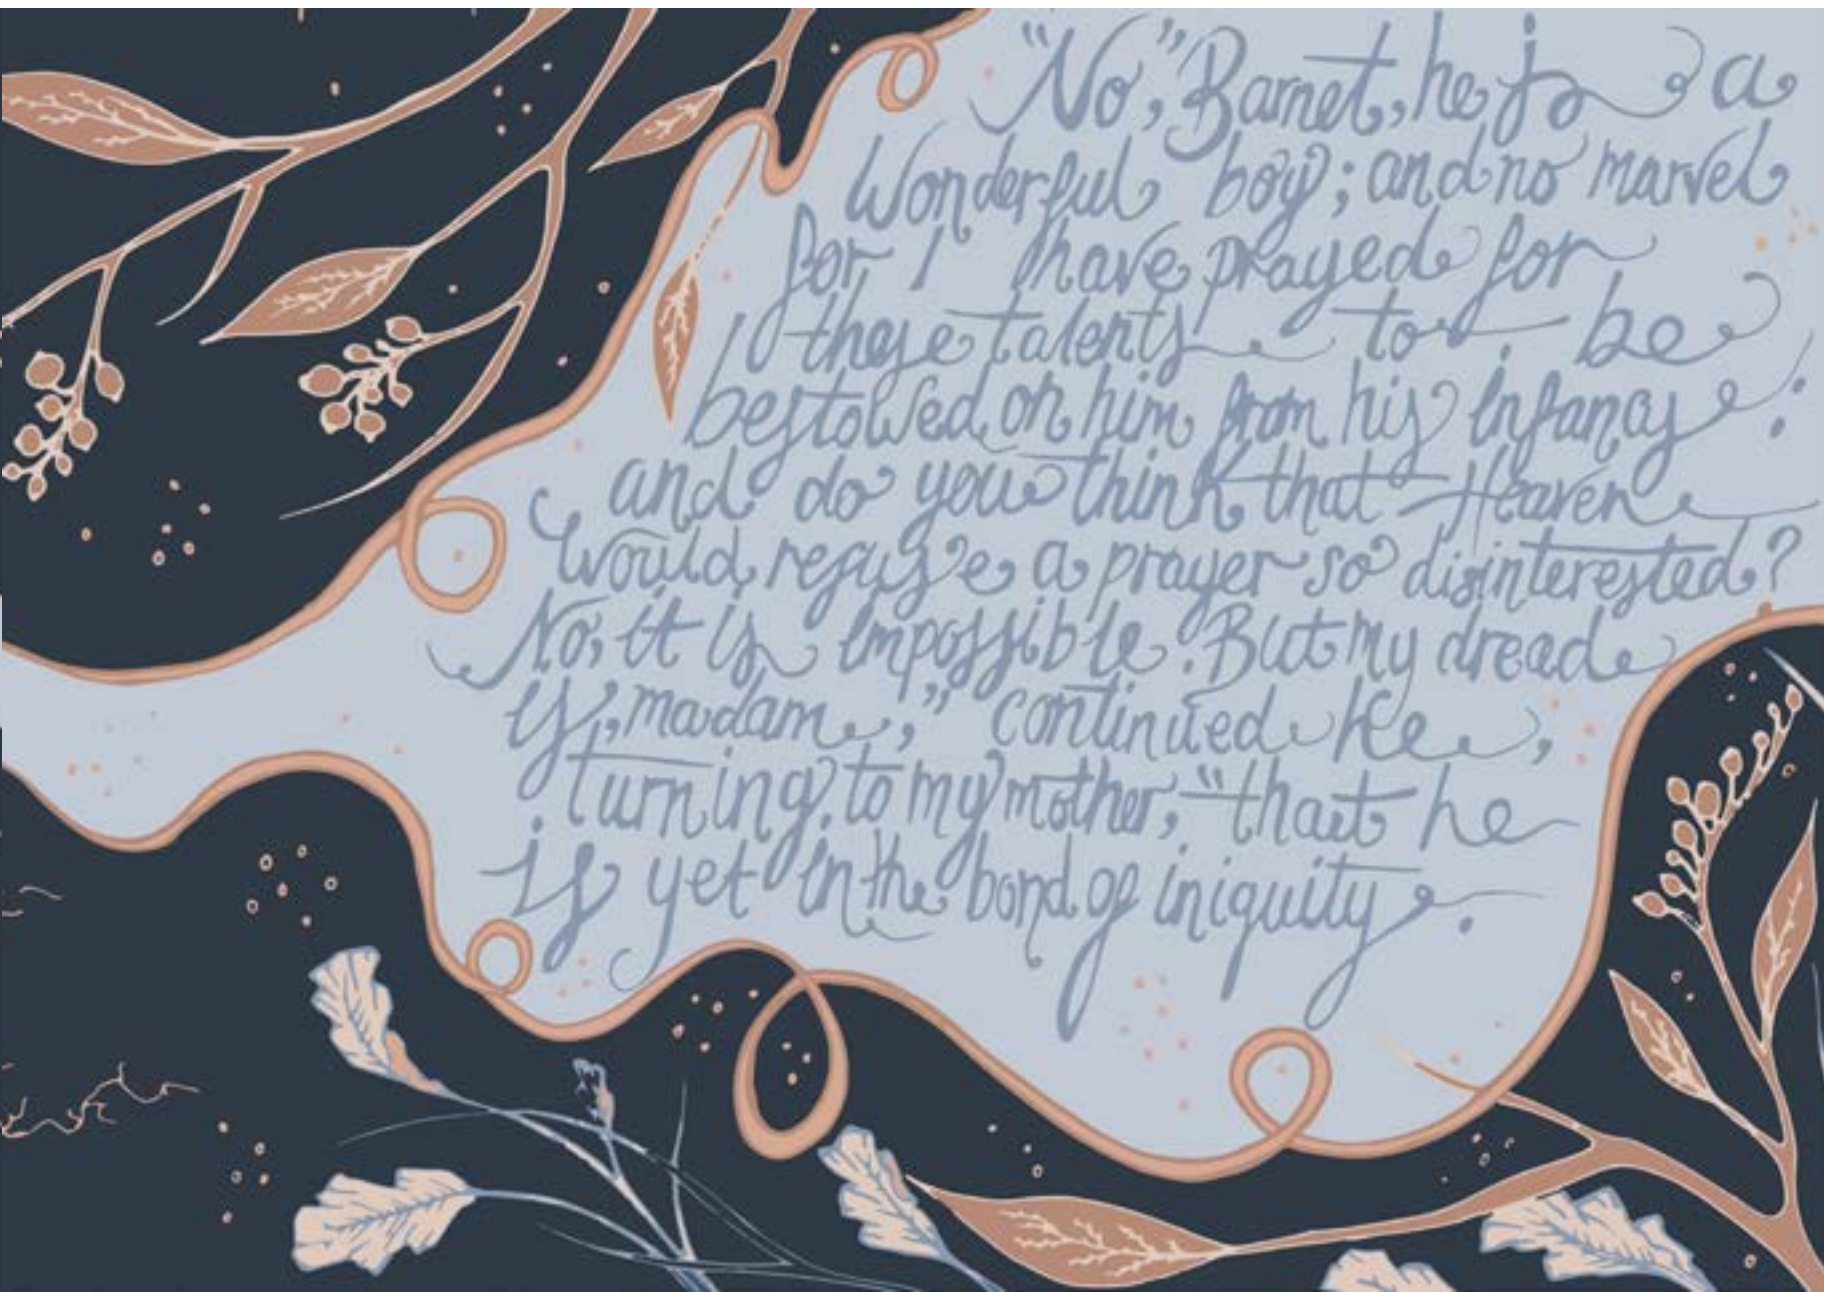 "No," Barnet, he is a
wonderful boy; and no marvel
for I have prayed for
these talents to be
bestowed on him from his infancy:
and do you think that Heaven
would refuse a prayer so disinterested?
No, it is impossible. But my dread
is, madam," continued he,
turning to my mother, "that he
is yet in the bond of iniquity.